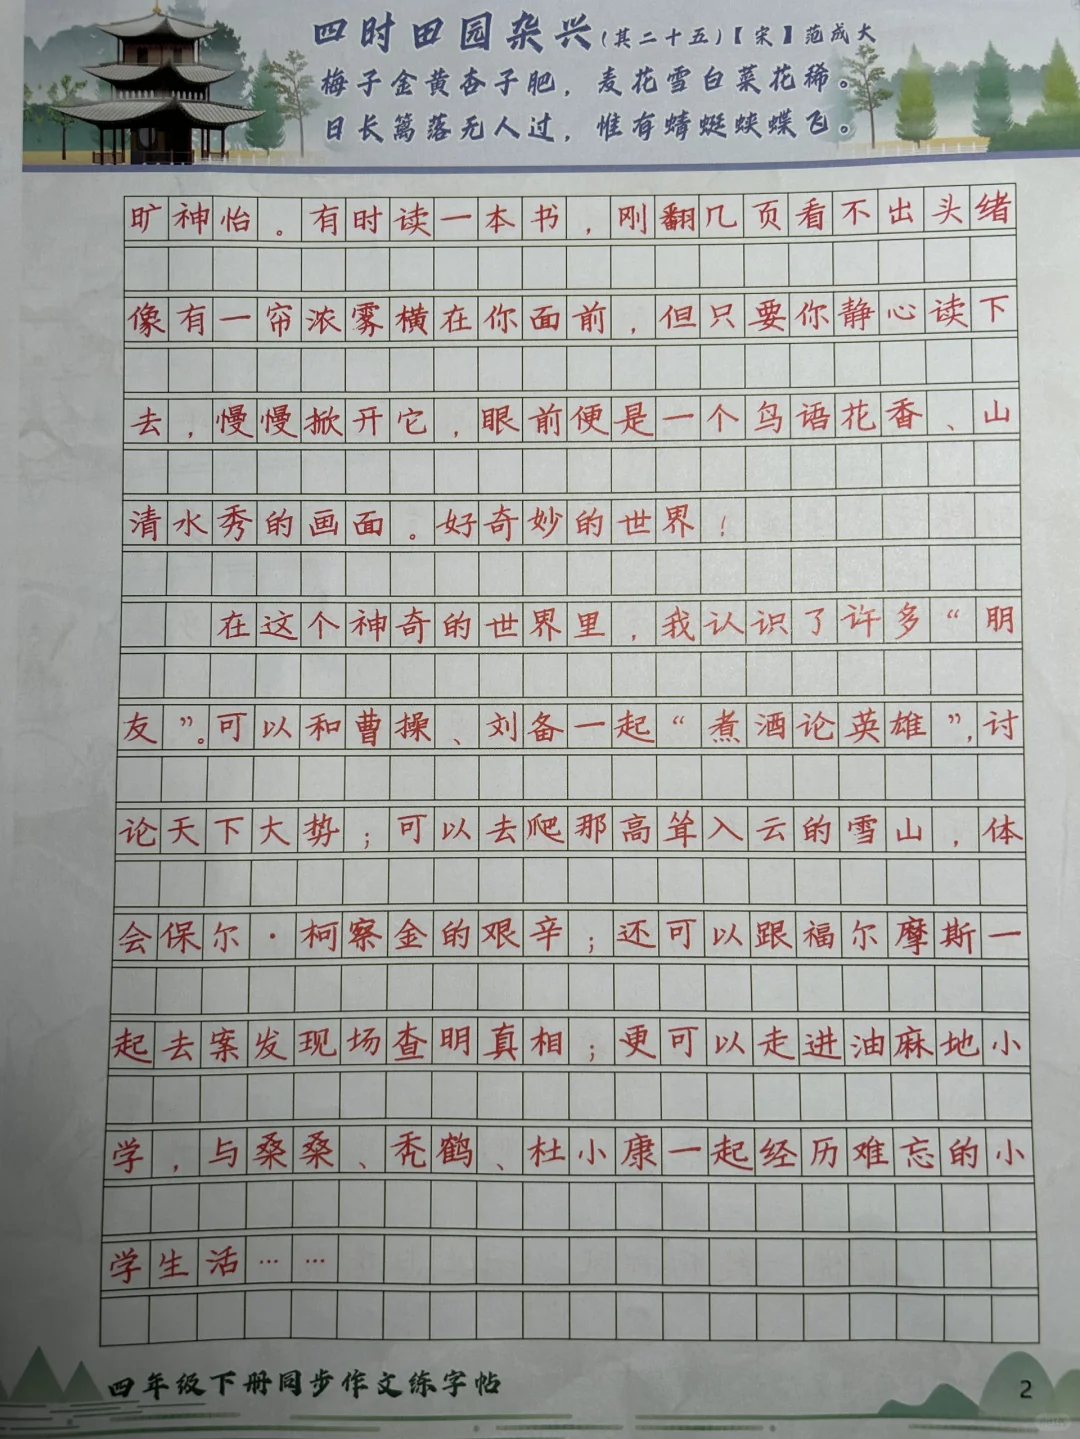 四时田园杂兴(其二十五)【宋】范成大
梅子金黄杏子肥，麦花雪白菜花稀。
日长篱落无人过，惟有蜻蜓蛱蝶飞。
旷神怡。有时读一本书，刚翻几页看不出头绪
像有一帘浓雾横在你面前，但只要你静心读下
去，慢慢掀开它，眼前便是一个鸟语花香、山
清水秀的画面。好奇妙的世界！
在这个神奇的世界里，我认识了许多“朋
友”。可以和曹操、刘备一起“煮酒论英雄”，讨
论天下大势；可以去爬那高耸入云的雪山，体
会保尔·柯察金的艰辛；还可以跟福尔摩斯一
起去案发现场查明真相；更可以走进油麻地小
学，与桑桑、秃鹤、杜小康一起经历难忘的小
学生活……
四年级下册同步作文练字帖
2